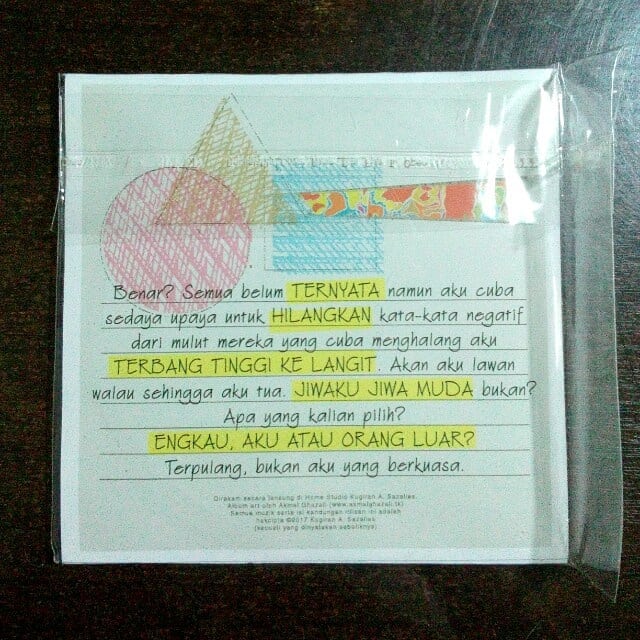 Benar? Semua belum TERNYATA namun aku cuba
sedaya upaya untuk HILANGKAN kata-kata negatif
dari mulut mereka yang cuba menghalang aku
TERBANG TINGGI KE LANGIT. Akan aku lawan
walau sehingga aku tua. JIWAKU JIWA MUDA bukan?
Apa yang kalian pilih?
ENGKAU, AKU ATAU ORANG LUAR?
Terpulang, bukan aku yang berkuasa.
Dirakam secara langsung di Home Studio Kugiran A. Sazalies.
Album art oleh Akmal Ghazali (www.akmalghazali.tk)
Semua muzik serta isi kandungan rilisan ini adalah
hakcipta ©2017 Kugiran A. Sazalies
(kecuali yang dinyatakan sebaliknya)